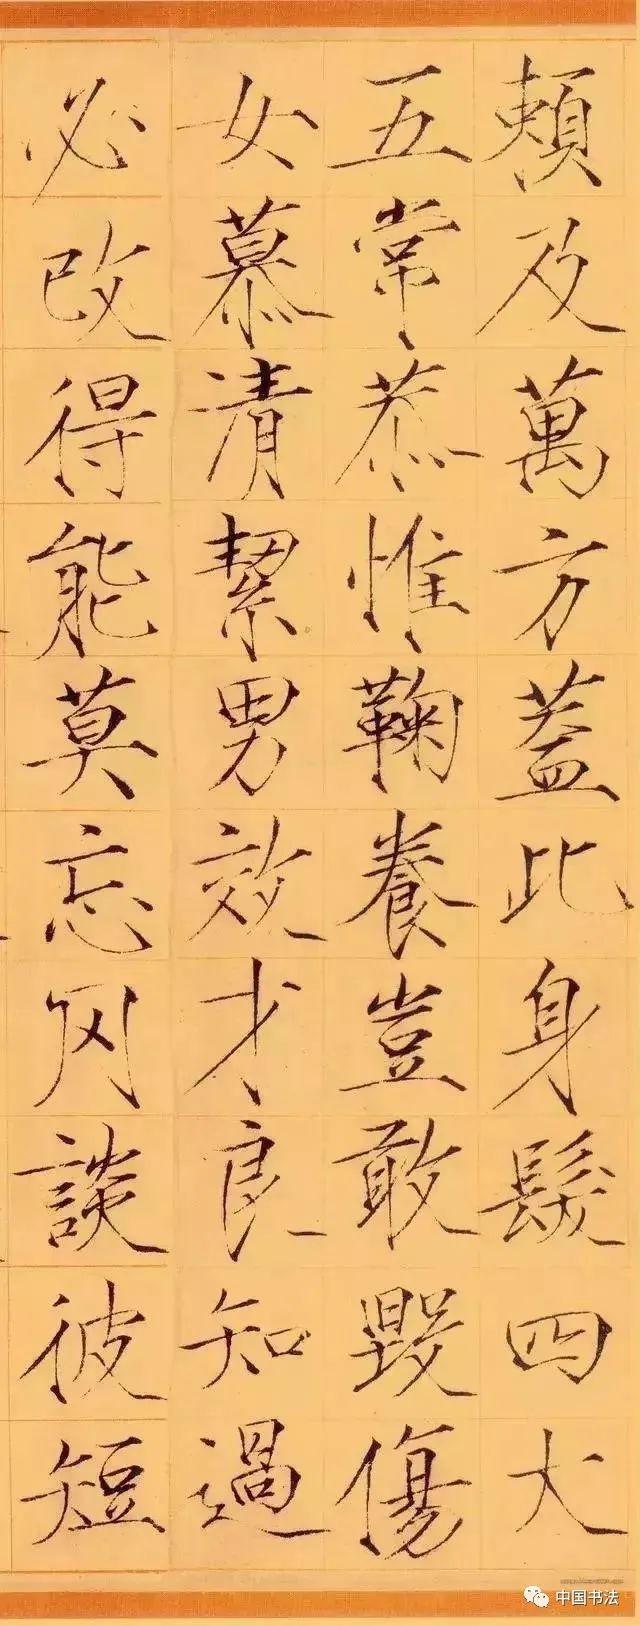 頼及萬方蓋此身髮四大
五常恭惟鞠養豈敢毀傷
女慕清絜男效才良知過
必改得能莫忘罔談彼短
中国书法